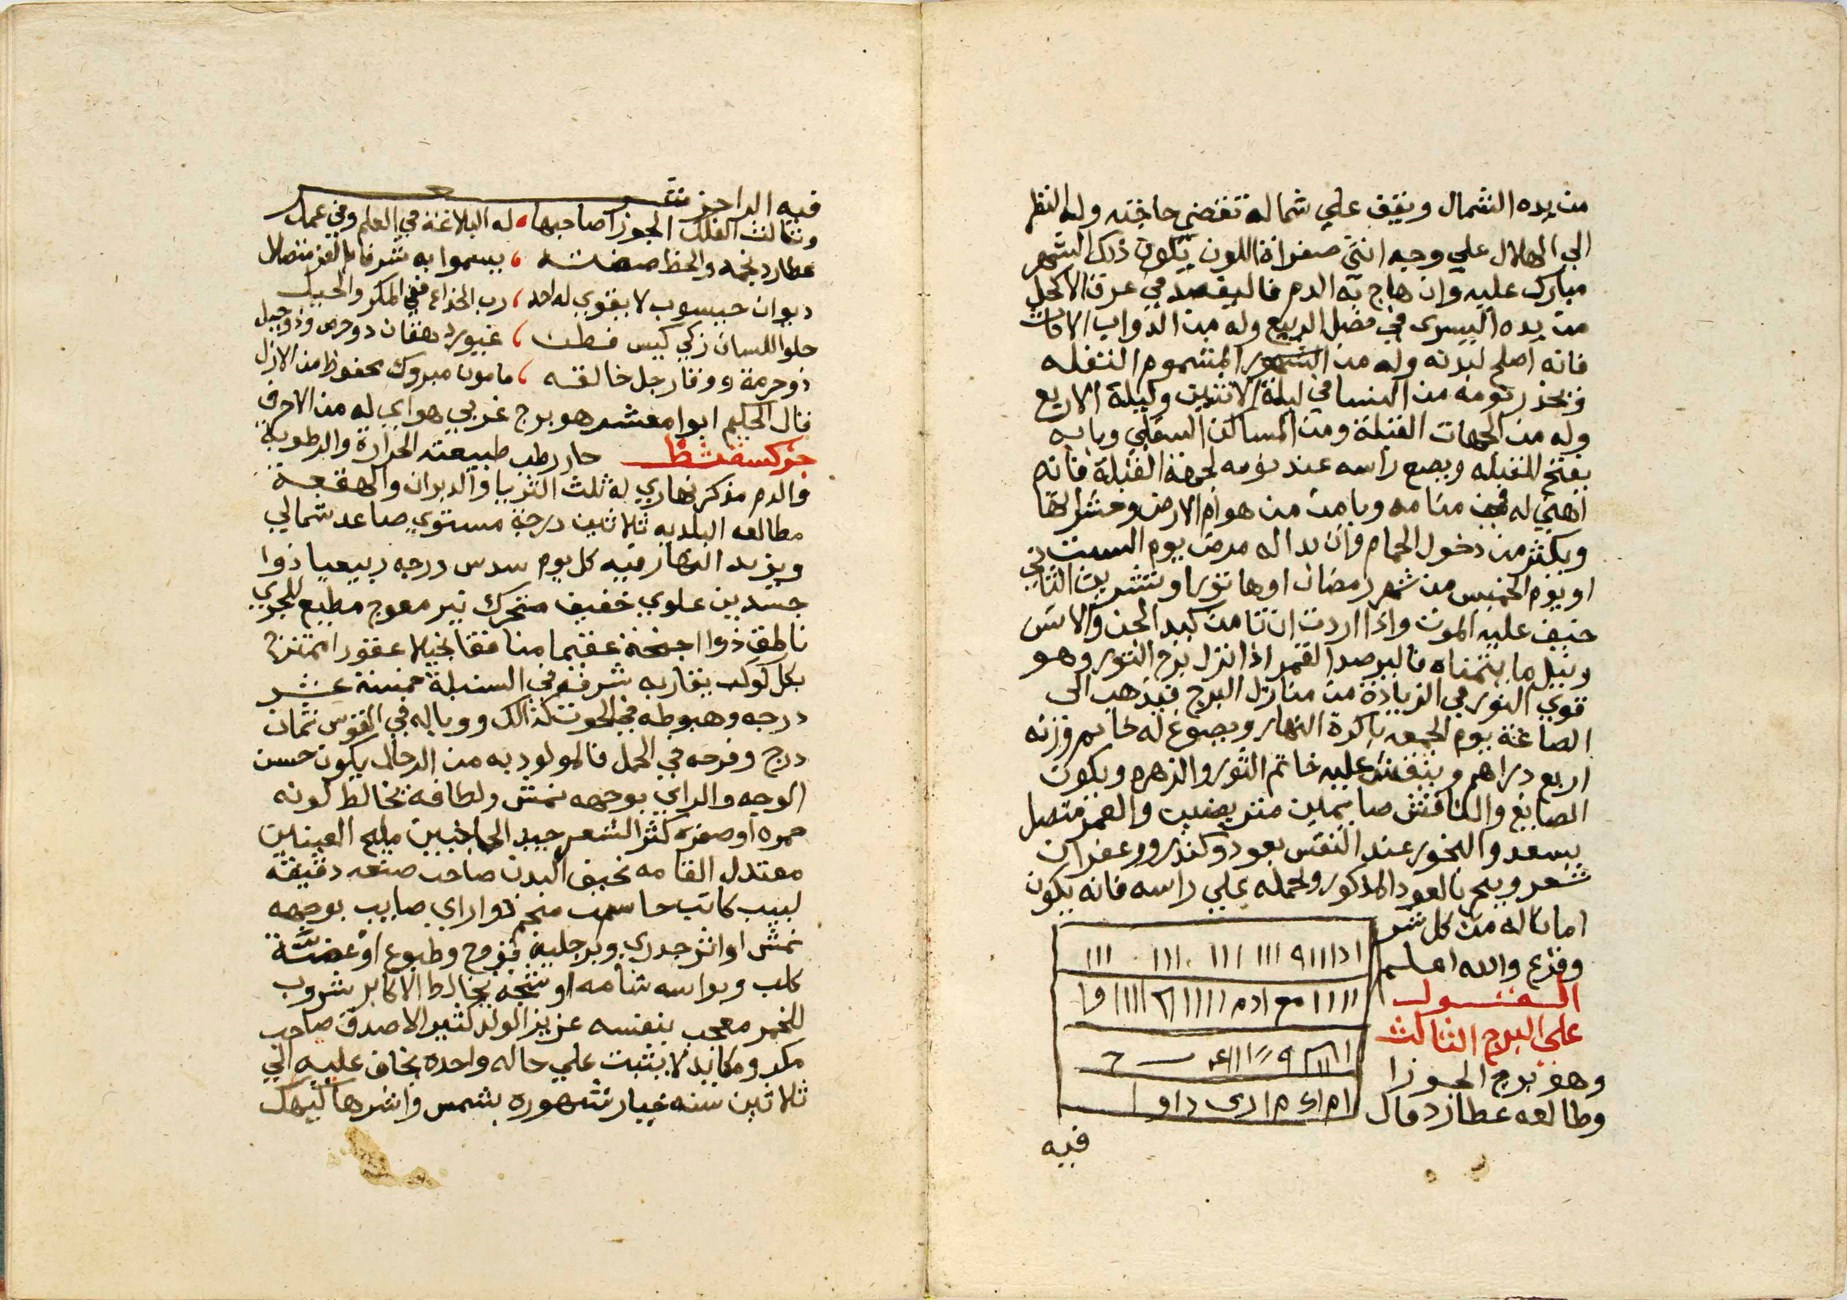 من يده الشمال ويقف علي شماله تقضي حاجته وله النظر
الي الهلال علي وجه انثي صفراة اللون يكون ذلك الشهر
مبارك عليه وان هاج به الدم فاليقصد في عرق الاكحل
من يده اليسري في فصل الربيع وله من الدواب
فانه اصلح لبدنه وله من المشموم
ويحذر نومه من النسا في ليلة الاثنين وليلة الاربع
وله من الجهات القبلة ومن المساكن السفلي وبابه
يفتح للقبله ويضع راسه عند نومه لجهة القبلة فانه
اهني له في منامه ويامن من هوام الارض وحشراتها
ويكثر من دخول الحمام وان بدا له مرض يوم السبت
او يوم الخميس من شهر رمضان او هاتور او تشرين الثاني
خيف عليه الموت واذا اردت ان تامن كيد الجن والانس
ونيل ما يتمناه فاليرصد القمر اذا نزل برج الثور وهو
قوي النور في الزيادة من منازل البرج فيذهب الي
الصاغة يوم الجمعه باكرة النهار ويصوغ له خاتم وزنه
اربع دراهم وينقش عليه خاتم الثور والزهره ويكون
الصايغ والناقش صايمين متريضين والقمر متصل
بسعد والبخور عند النقش بعود وكندر وزعفران
شعر ويبخر بالعود المذكور ويحمله علي راسه فانه يكون
امانا له من كل شر
وفزع والله اعلم
القول
علي البرج الثالث
وهو برج الجوزا
وطالعه عطارد قال
فيه
فيه الراجز شعر
وثالث الفلك الجوزا صاحبها، له البلاغة في العلم وفي عمل
عطارد نجمه والحظ صفته، يسموا به شرفا بالعز متصلا
ديوان حيسوب لا يقوي له احد، رب الخداع ففي المكر والحيل
حلوا اللسان زكي كيس فطن، غيور دهقان ذو حرص وذو جيل
ذو حرمة ووقار جل خالقه، مامون مبروك محفوظ من الازل
قال الحكيم ابوا معشر هو برج غربي هواي له من الاحرف
حار رطب طبيعته الحرارة والرطوبة
والدم مذكر نهاري له ثلث الثريا والدبران والهقعة
مطالعه البلديه ثلاثين درجة مستوي صاعد شمالي
ويزيد النهار فيه كل يوم سدس درجه ربيعيا ذوا
جسدين علوي خفيف متحرك نير معوج مطيع للجدي
ناطق ذوا اجنحة عقيما منافقا بخيلا عقورا
بكل كوكب يقاربه شرفه في السنبلة خمسة عشر
درجه وهبوطه في الحوت كذالك ووباله في القوس ثمان
درج وفرحه في الحمل فالمولود به من الرجال يكون حسن
الوجه والراي بوجهه نمش ولطافه يخالط لونه
حمره او صفره كثر الشعر جيد الحاجبين مليح العينين
معتدل القامه نحيف البدن صاحب صنعه دقيقة
لبيب كاتب حاسب منجم ذوا راي صايب بوجهه
نمش او اثر جدري وبرجليه قروح وطبوع او عضة
كلب وبراسه شامه او شجه يخالط الاكابر شروب
للخمر معجب بنفسه عزيز الولد كثير الاصدقا صاحب
مكر ومكايد لا يثبت علي حاله واحده يخاف عليه الي
ثلاثين سنه خيار شهوره بشمس واشرها كيهك